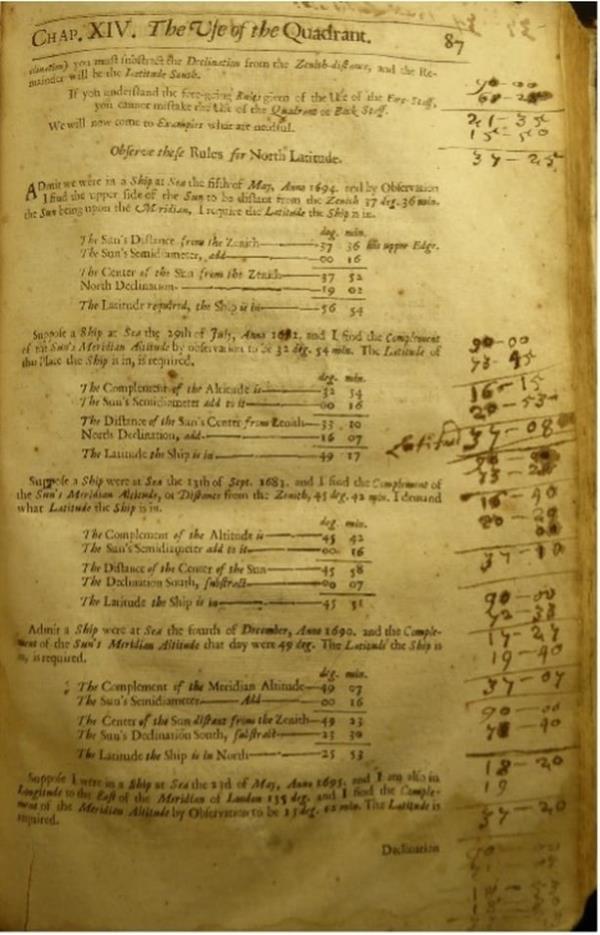 CHAP. XIV. The Use of the Quadrant. 87
you must substract the Declination from the Zenith-distance, and the Re-
mainder will be the Latitude South.
If you understand the fore-going Rules given of the Use of the Fore-Staff,
you cannot mistake the Use of the Quadrant or Back Staff.
We will now come to Examples what are needful.
Observe these Rules for North Latitude.
ADmit we were in a Ship at Sea the fifth of May, Anno 1694. and by Observation
I find the upper side of the Sun to be distant from the Zenith 37 deg. 36 min.
the Sun being upon the Meridian, I require the Latitude the Ship is in.
deg. min.
The Sun's Distance from the Zenith 37 36 his upper Edge.
The Sun's Semidiameter, add 00 16
The Center of the Sun from the Zenith 37 52
North Declination 19 02
The Latitude required, the Ship is in 56 54
Suppose a Ship at Sea the 29th of July, Anno and I find the Complement
of the Sun's Meridian Altitude by observation to be 32 deg. 54 min. The Latitude of
the Place the Ship is in, is required.
deg. min.
The Complement of the Altitude is 32 54
The Sun's Semidiameter add to it 00 16
The Distance of the Sun's Center from Zenith 33 10
North Declination, add 16 07
The Latitude the Ship is in 49 17
Suppose a Ship were at Sea the 13th of Sept. 1683. and I find the Complement of
the Sun's Meridian Altitude, or Distance from the Zenith, 45 deg. 42 min. I demand
what Latitude the Ship is in.
deg. min.
The Complement of the Altitude is 45 42
The Sun's Semidiameter add to it 00 16
The Distance of the Center of the Sun 45 58
The Declination South, substract 00 07
The Latitude the Ship is in 45 51
Admit a Ship were at Sea the fourth of December, Anno 1690. and the Comple-
ment of the Sun's Meridian Altitude that day were 49 deg. The Latitude the Ship is
in, is required.
deg. min.
The Complement of the Meridian Altitude 49 07
The Sun's Semidiameter Add 00 16
The Center of the Sun distant from the Zenith 49 23
The Sun's Declination South, substract 23 30
The Latitude the Ship is in North 25 53
Suppose I were in a Ship at Sea the 23d of May, Anno 1695. and I am also in
Longitude to the East of the Meridian of London 135 deg. and I find the Comple-
ment of the Meridian Altitude by Observation to be 15 deg. 12 min. The Latitude is
required.
Declination
90-00
21-35
15-50
37-25
90-00
73-45
16-15
20-53
37-08
16-40
37-10
90-00
72-33
17-27
19-40
37-07
90-00
18-20
19
37-20